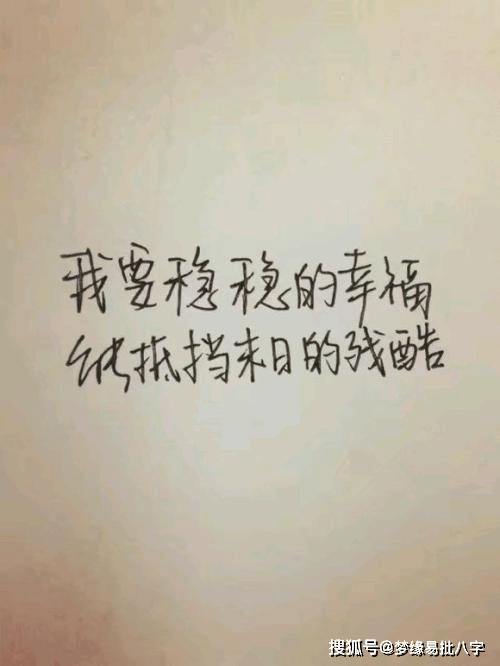 我要稳稳的幸福
能抵挡末日的残酷
搜狐号@梦缘易批八字